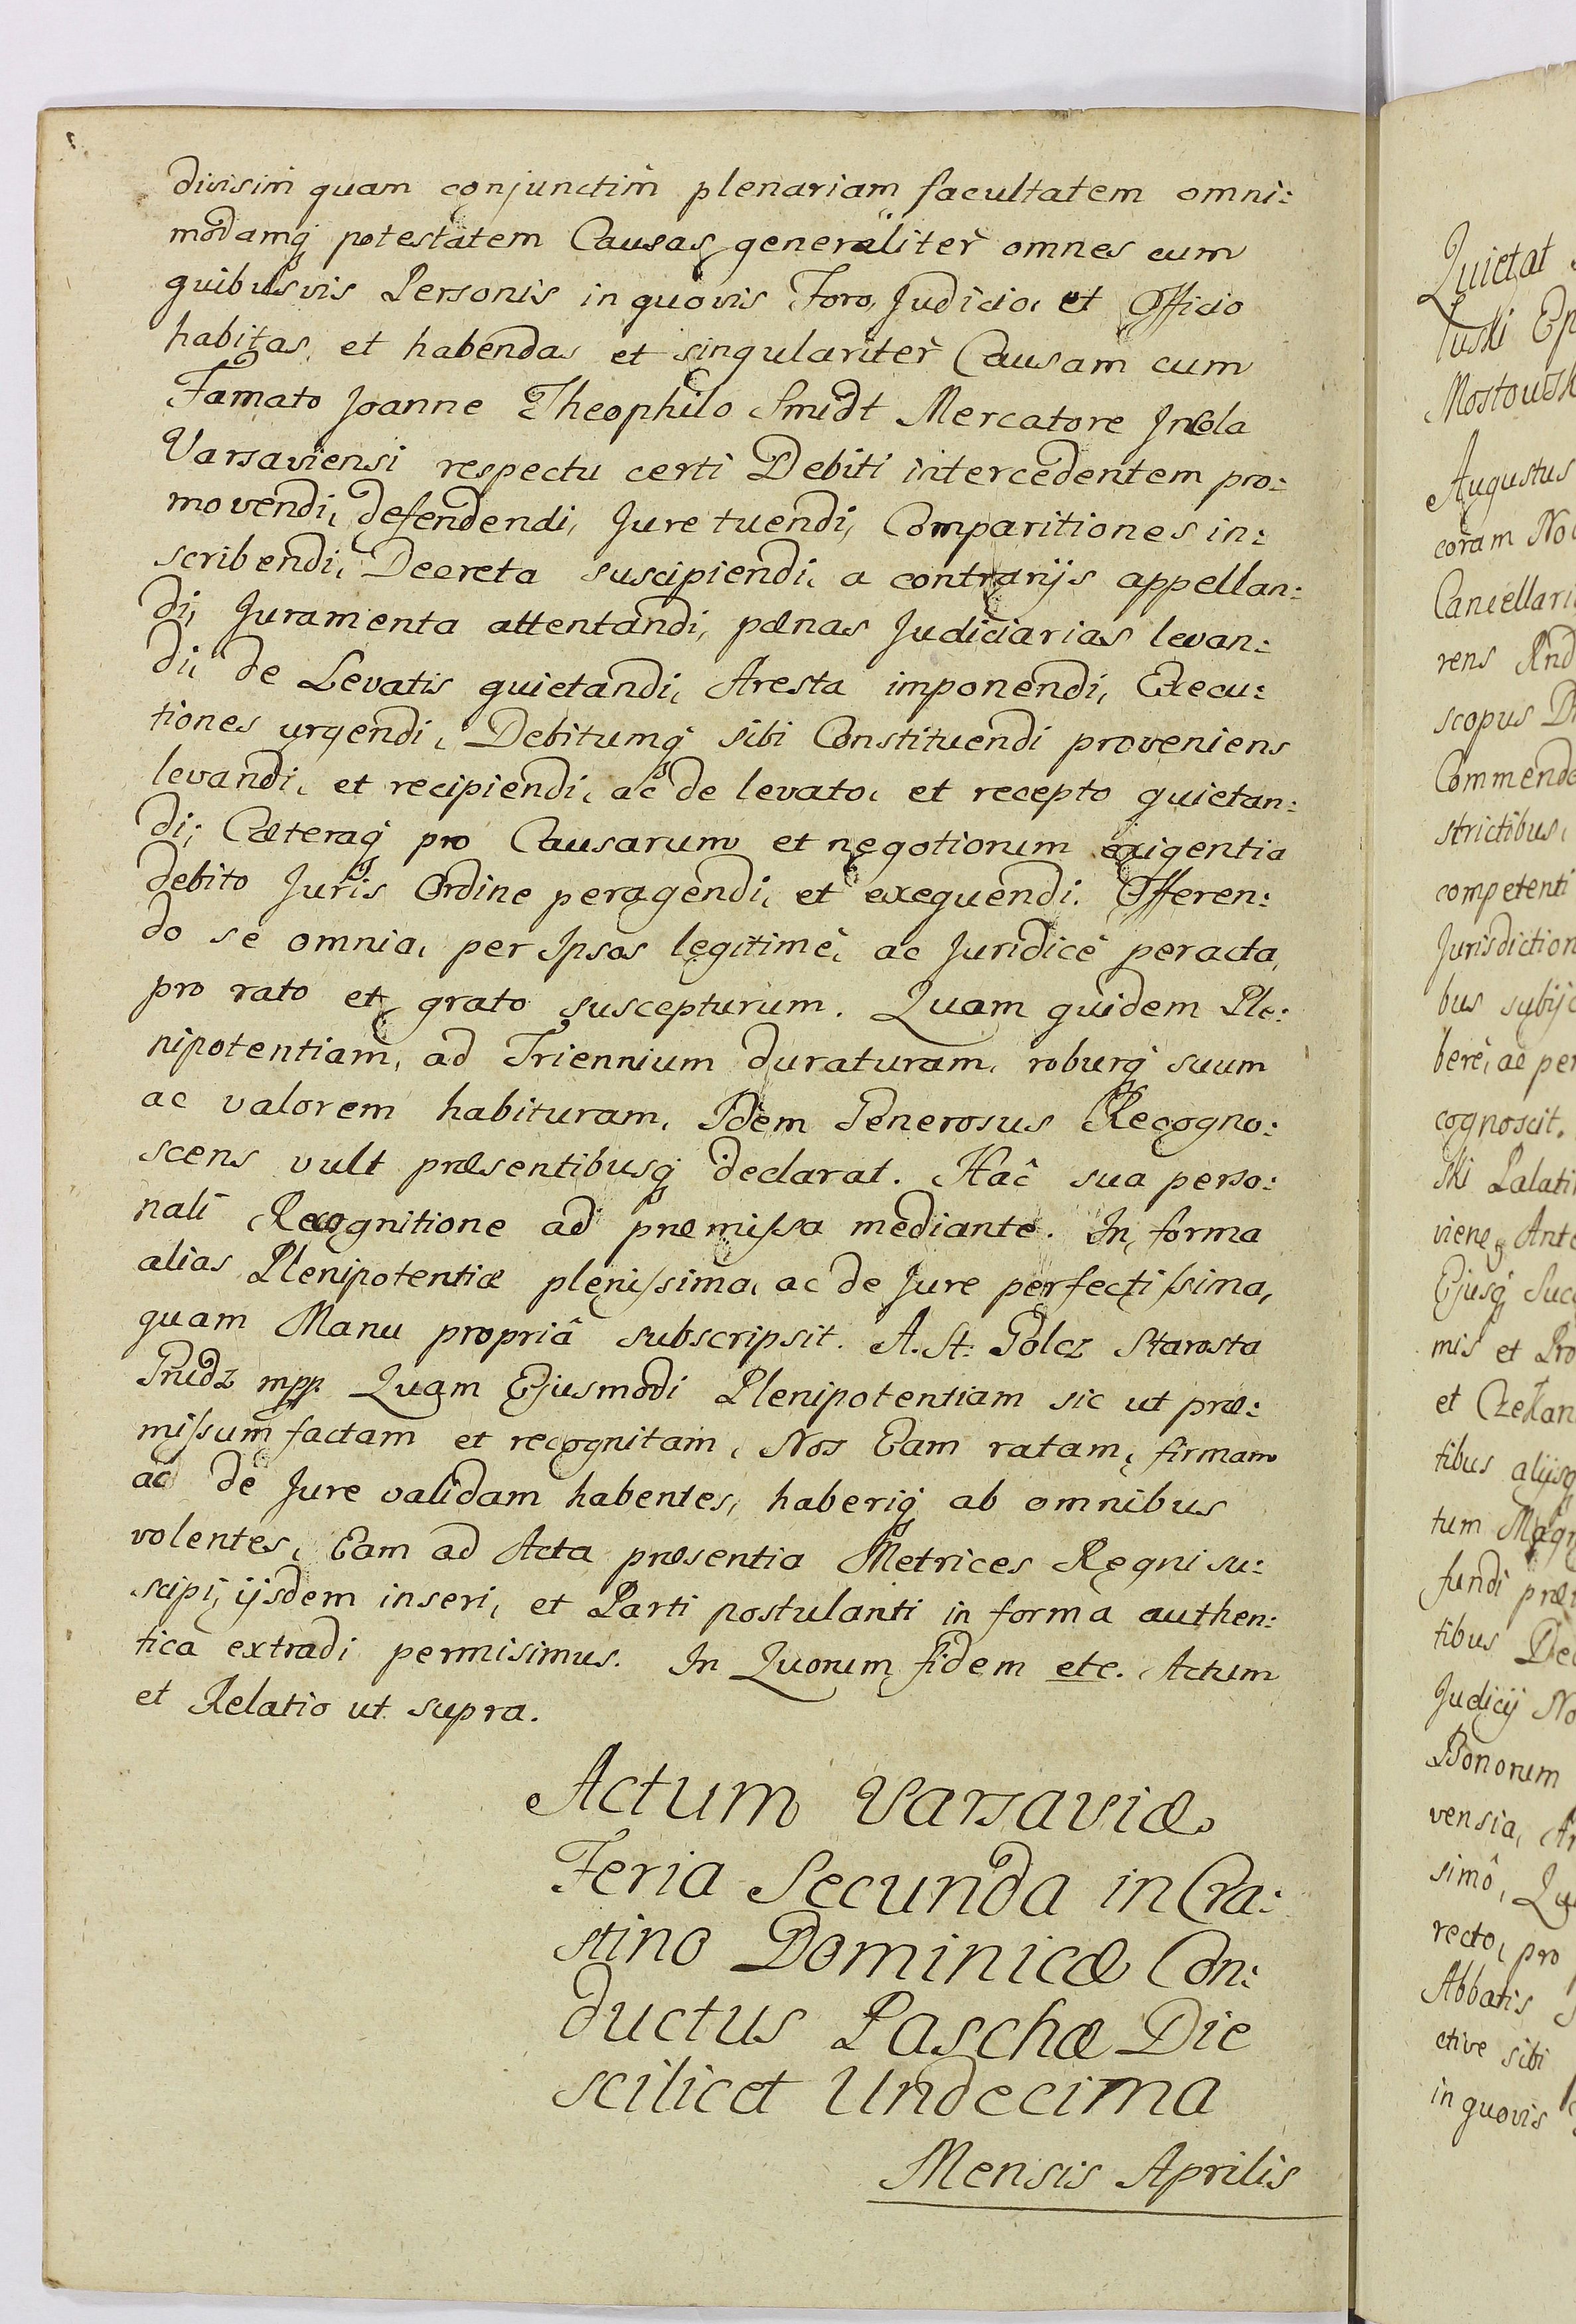 divisim quam conjunctim plenariam facultatem omni:
modamq potestatem Causas generaliter omnes cum
quibusvis Personis in quovis Foro, Judicio, et Officio
habitas, et habendas et singulariter Causam cum
Famato Joanne Theophilo Smidt Mercatore Incola
Varsaviensi respectu certi Debiti intercedentem pro:
movendi, defendendi, Jure tuendi, Comparitiones in:
scribendi, Decreta suscipiendi, a contrarijs appellan:
di, Juramenta attentandi, pœnas Judiciarias levan:
di, de Levatis quietandi, Aresta imponendi, Execu:
tiones urgendi, Debitumq sibi Constituendi proveniens
levandi, et recipiendi, ac de levato, et recepto quietan:
di; Cæteraq pro Causarum et negotiorum exigentia
debito Juris Ordine peragendi, et exequendi. Offeren:
do se omnia, per Ipsos legitimè, ac Juridicè peracta,
pro rato et grato suscepturum. Quam quidem Ple:
nipotentiam, ad Triennium duraturam, roburq suum
ac valorem habituram, Idem Generosus Recogno:
scens vult præsentibusq declarat. Hac sua perso:
nali Recognitione ad præmissa mediante. In forma
alias Plenipotentiæ plenissima, ac de Jure perfectissima,
quam Manu propriâ subscripsit. A. St: Golcz Starosta
Grudz mpp. Quam Ejusmodi Plenipotentiam sic ut præ:
missum factam et recognitam, Nos Eam ratam, firmam
ac de Jure validam habentes, haberiq ab omnibus
volentes, Eam ad Acta præsentia Metrices Regni su:
scipi, ijsdem inseri, et Parti postulanti in forma authen:
tica extradi permisimus. In Quorum fidem etc. Actum
et Relatio ut supra.
Actum Varsaviæ
Feria Secunda in Cra:
stino Dominicæ Con:
ductus Paschæ Die
scilicet Undecima
Mensis Aprilis
Quietat
luski Ep
Mostowsk
Augustus
coram No
Cancellari
rens And
scopus
Commenda
strictibus,
competenti
Jurisdiction
bus subijc
berè, ac per
cognoscit.
ski Palati
viene, Anto
Ejusq Suc
mis et Pro
et Czekan
tibus alijsq
tum Magn
fundi præ
tibus Dec
Judicij No
Bonorum
vensia, Ar
simô, Qu
recto, pro
Abbatis
ctive sibi
in quovis